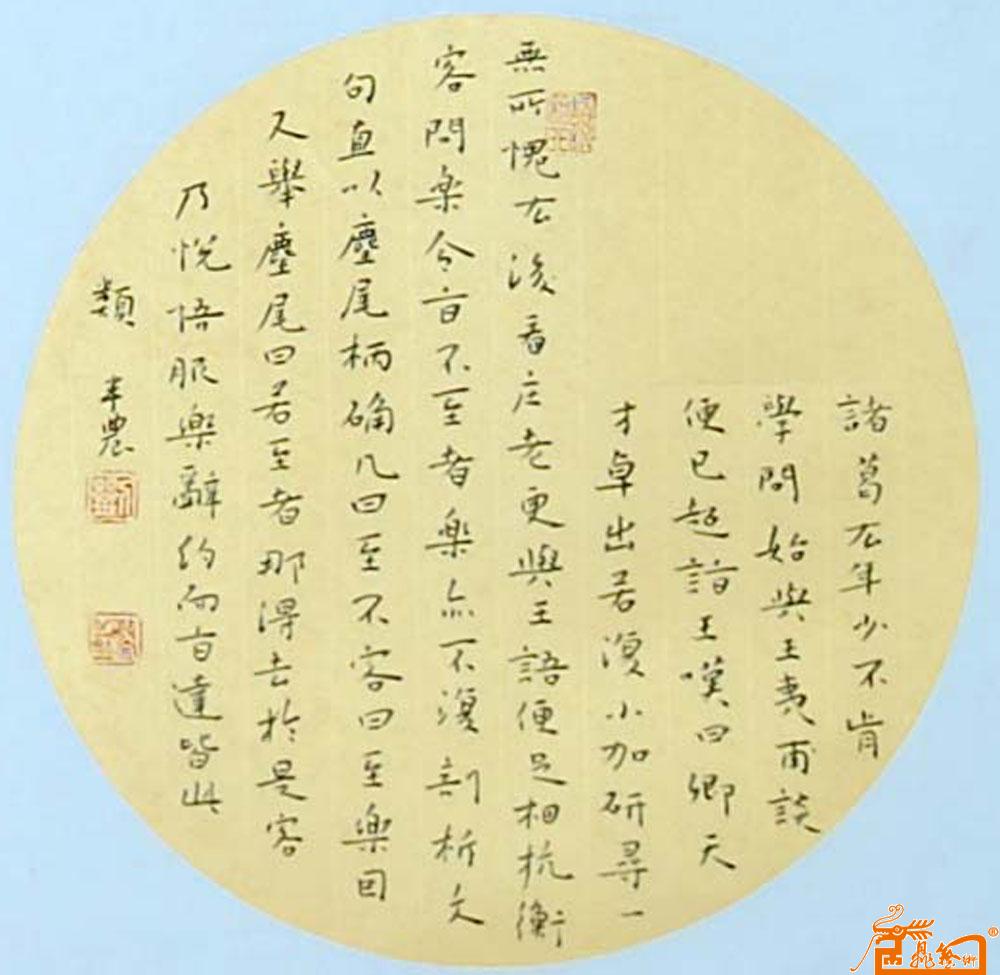 諸葛厷年少不肯
學問始與王夷甫談
便已超詣王嘆曰卿天
才卓出若復小加研尋一
無所愧厷後看庄老更與王語便足相抗衡
客問樂令旨不至者樂亦不復剖析文
句直以塵尾柄确几曰至不客曰至樂因
又舉塵尾曰若至者那得去於是客
乃悅悟服樂辭約而旨達皆此
類 半農